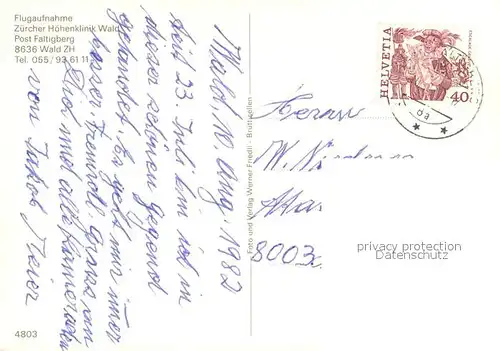 Flugaufnahme
Zürcher Höhenklinik Wald
Post Faltigberg
8636 Wald ZH
Tel. 055 / 93 61 11
Wald 10. Aug. 1982
Seit 23. Juli bin ich in
dieser schönen Gegend
gelandet. Es geht mir immer
besser. Freundl. Grüsse an
Dich und alle Kameraden
von Jakob Meier
4803
Foto und Verlag Werner Friedli - Brüttisellen
HELVETIA
40
Herrn
W.
8003
privacy protection
DELCAMPE